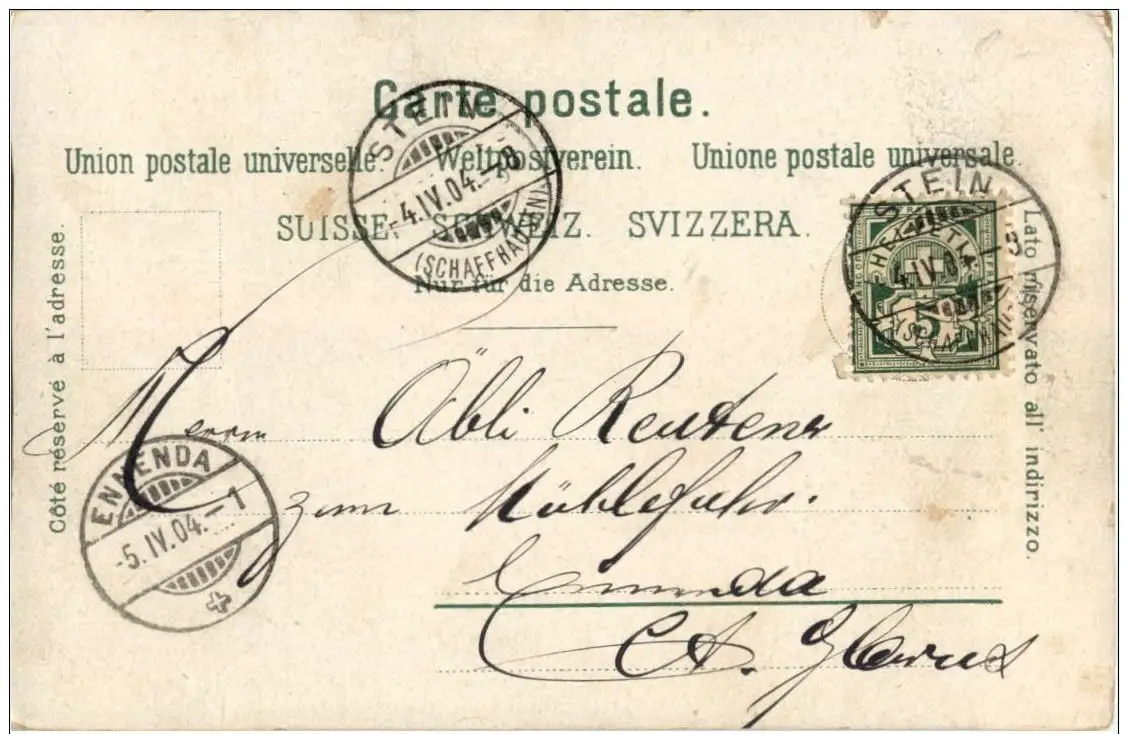 Carte postale.
Union postale universelle. Weltpostverein. Unione postale universale.
SUISSE. SCHWEIZ. SVIZZERA.
Nur für die Adresse.
Côté réservé à l'adresse.
Lato riservato all' indirizzo.
STEIN
-4.IV.04.-8
(SCHAFFHAUSEN)
STEIN
4.IV.04
HELVETIA
5
Herrn Äbli Rentener
zum
Ennenda
Ct. Glarus
ENNENDA
-5.IV.04.-1